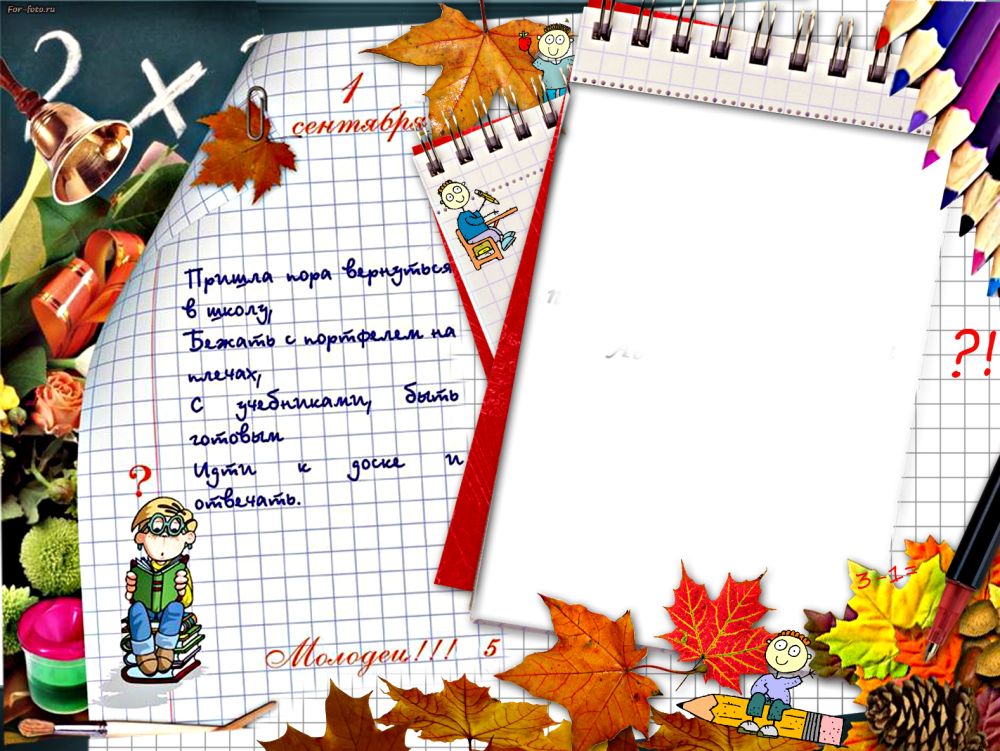 For-foto.ru
1
сентября
Пришла пора вернуться
в школу,
Бежать с портфелем на
плечах,
С учебниками, быть
готовым
Идти к доске и
отвечать.
?
?!
3-1=
Молодец!!! 5